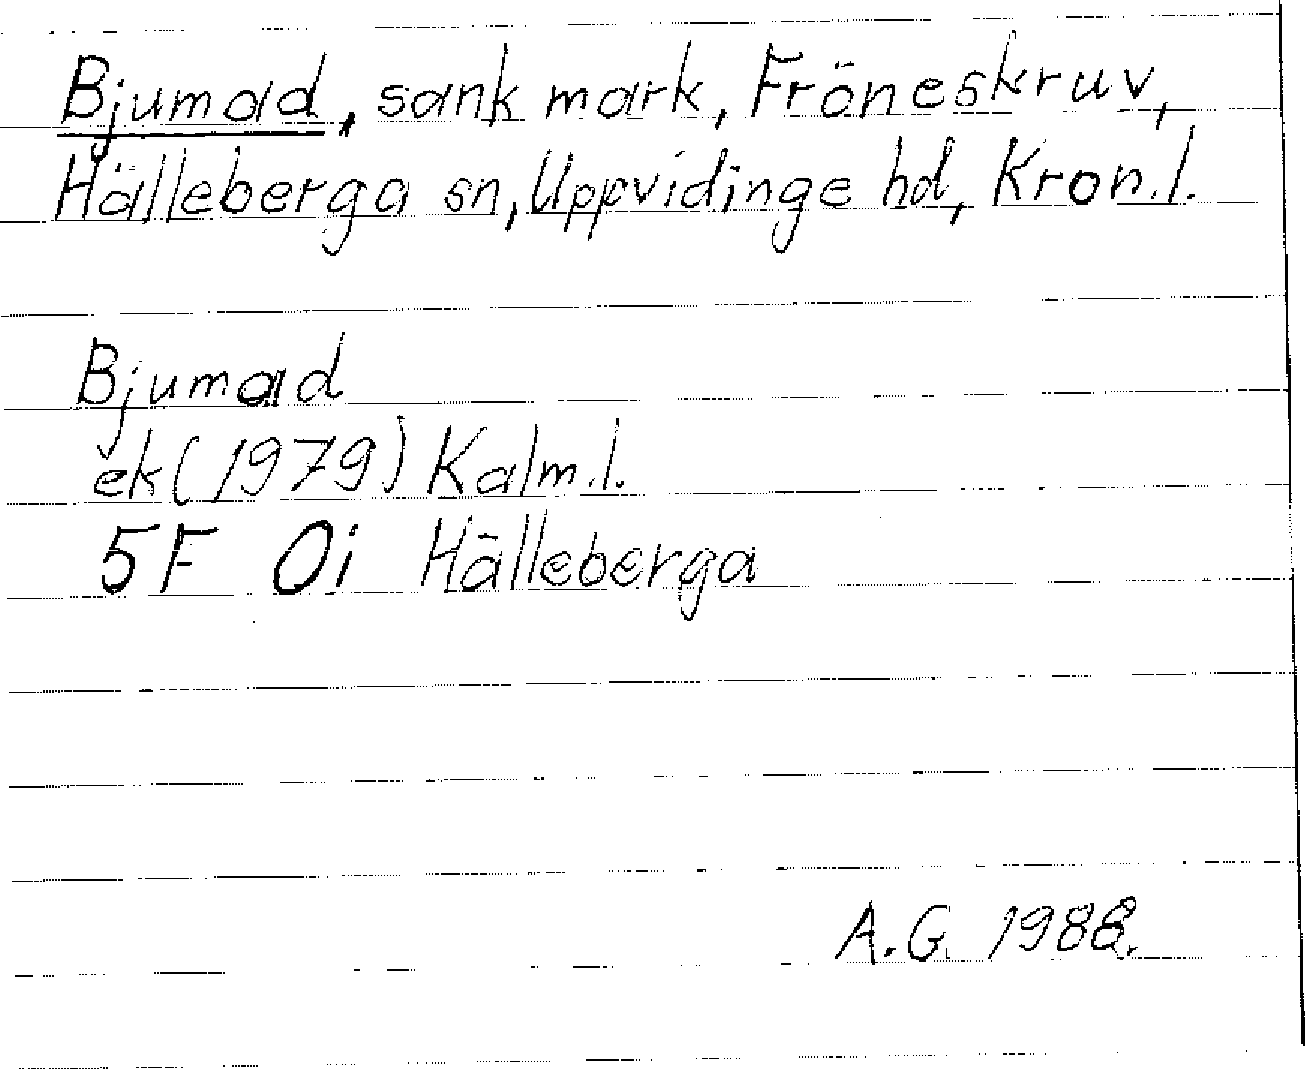 Bjumad, sank mark, Fröneskruv,
Hälleberga sn, Uppvidinge hd, Kron.l.
Bjumad
ek (1979) Kalm.l.
5F 0i Hälleberga
A.G. 1988.